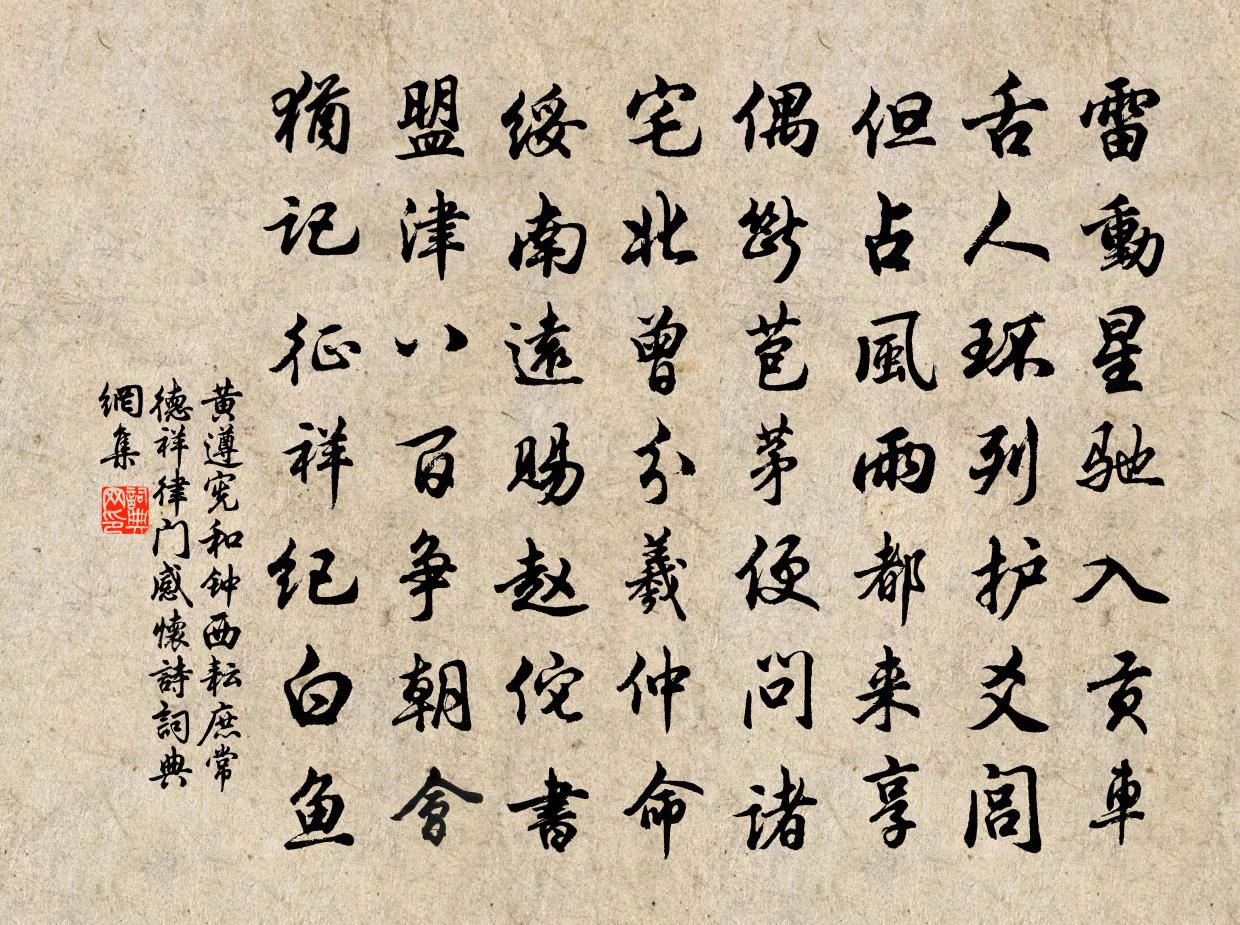 雷動星馳入貢車
舌人環列护爻閭
但占風雨都来享
偶斷苞茅便问诸
宅北曾分羲仲命
綏南遠賜赵佗書
盟津八百争朝會
猶记征祥纪白鱼
黄遵宪和钟西耘庶常
德祥律门感懷詩詞典
網集
詞典网印